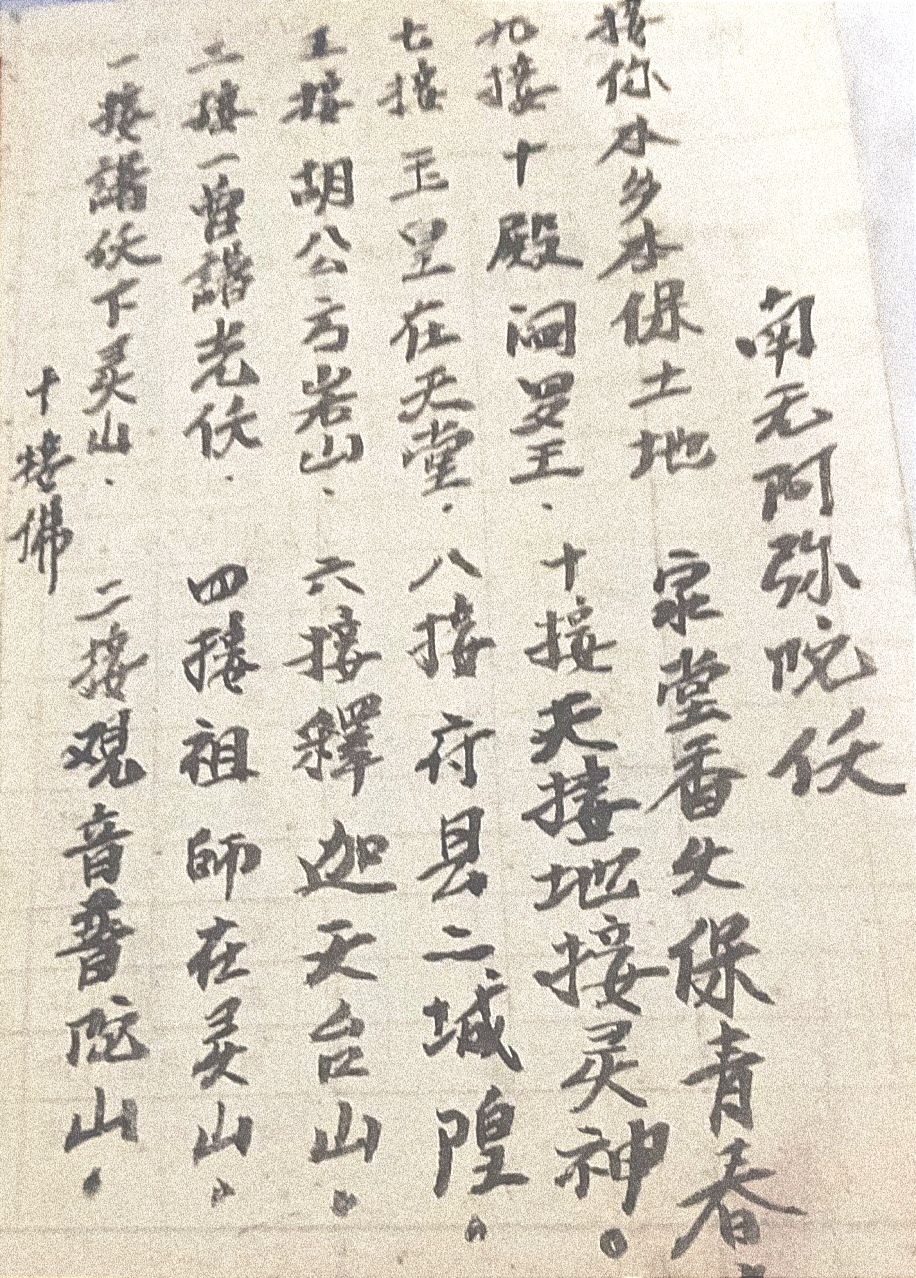 十接佛
一接諸仸下灵山. 二接观音普陀山.
三接一曽諸老仸. 四接祖師在灵山.
五接胡公方岩山. 六接釋迦天台山.
七接玉皇在天堂. 八接府县二城隍.
九接十殿阎罗王. 十接天接地接灵神。
接你本乡本保土地 家堂香火保青春.
南无阿弥陀仸